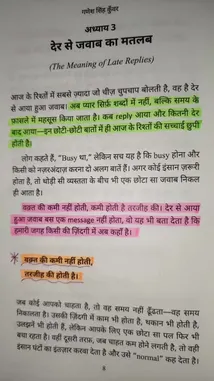 गणेश सिंह कुँवर
अध्याय 3
देर से जवाब का मतलब
(The Meaning of Late Replies)
आज के रिश्तों में सबसे ज़्यादा जो चीज़ चुपचाप बोलती है, वह है देर
से आया हुआ जवाब। अब प्यार सिर्फ़ शब्दों में नहीं, बल्कि समय के
फ़ासले में महसूस किया जाता है। कब reply आया और कितनी देर
बाद आया—इन छोटी-छोटी बातों में ही आज के रिश्तों की सच्चाई छुपी
होती है।
लोग कहते हैं, "Busy था," लेकिन सच यह है कि busy होना और
किसी को नज़रअंदाज़ करना दो अलग बातें हैं। अगर कोई इंसान ज़रूरी
होता है, तो थोड़ी सी व्यस्तता के बीच भी एक छोटा सा जवाब निकल
ही आता है।
वक़्त की कमी नहीं होती, कमी होती है तरजीह की। देर से आया
हुआ जवाब बस एक message नहीं होता, वो यह भी बता देता है कि
हमारी जगह किसी की ज़िंदगी में अब कहाँ है।
वक़्त की कमी नहीं होती,
तरजीह की होती है।
जब कोई आपको चाहता है, तो वह समय नहीं ढूँढता—वह समय
निकालता है। उसकी ज़िंदगी में काम भी होता है, थकान भी होती है,
उलझनें भी होती हैं, लेकिन आपके लिए एक छोटा सा पल फिर भी
बचा रहता है। वहीं दूसरी तरफ़, जब चाहत कम होने लगती है, तो वही
इंसान घंटों का इंतज़ार करवा देता है और उसे "normal" कह देता है।
8